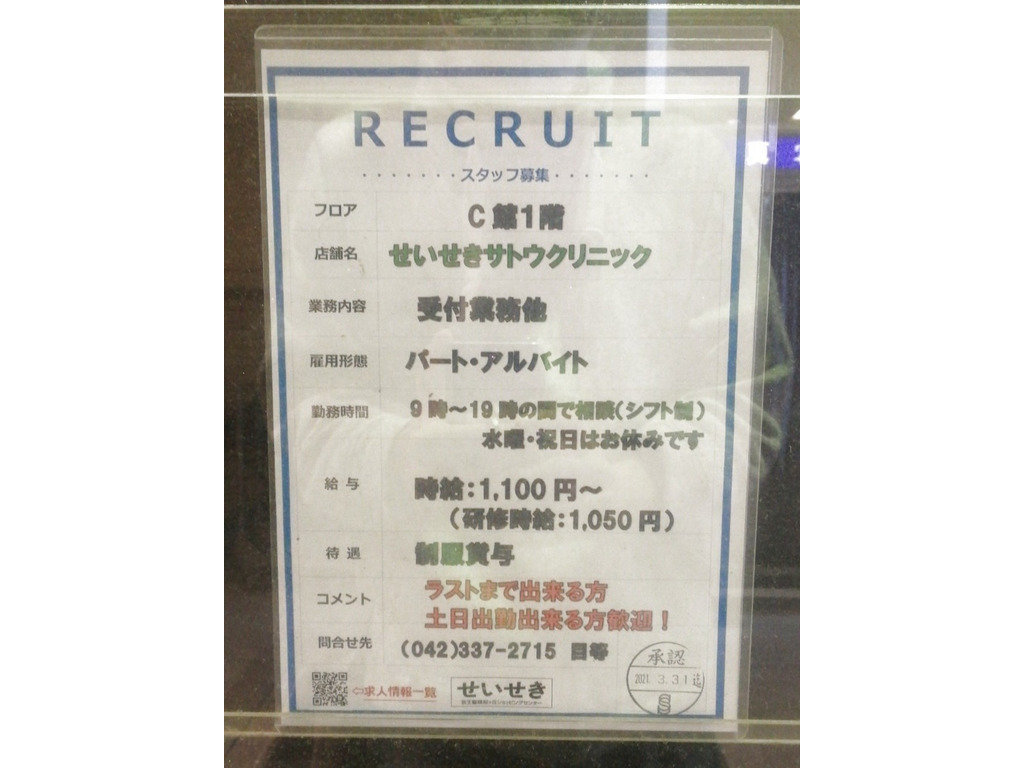 RECRUIT
・・・・・・・スタッフ募集・・・・・・・
フロア C館1階
店舗名 せいせきサトウクリニック
業務内容 受付業務他
雇用形態 パート・アルバイト
勤務時間 9時～19時の間で相談(シフト制)
水曜・祝日はお休みです
給与 時給:1,100円～
(研修時給:1,050円)
待遇 制服貸与
コメント ラストまで出来る方
土日出勤出来る方歓迎！
問合せ先 (042)337-2715
承認
2021.3.31迄
⇦求人情報一覧 せいせき